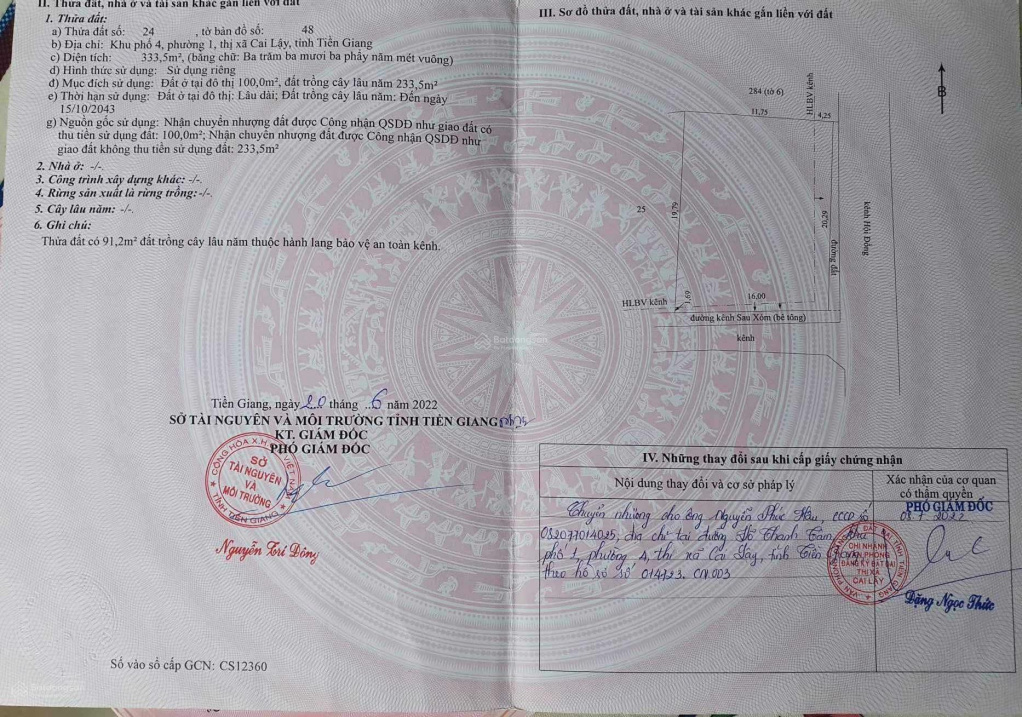 II. Thửa đất, nhà ở và tài sản khác gắn liền với đất
1. Thửa đất:
a) Thửa đất số: 24 , tờ bản đồ số: 48
b) Địa chỉ: Khu phố 4, phường 1, thị xã Cai Lậy, tỉnh Tiền Giang
c) Diện tích: 333,5m², (bằng chữ: Ba trăm ba mươi ba phẩy năm mét vuông)
d) Hình thức sử dụng: Sử dụng riêng
đ) Mục đích sử dụng: Đất ở tại đô thị 100,0m², đất trồng cây lâu năm 233,5m²
e) Thời hạn sử dụng: Đất ở tại đô thị: Lâu dài; Đất trồng cây lâu năm: Đến ngày
15/10/2043
g) Nguồn gốc sử dụng: Nhận chuyển nhượng đất được Công nhận QSDĐ như giao đất có
thu tiền sử dụng đất: 100,0m²; Nhận chuyển nhượng đất được Công nhận QSDĐ như
giao đất không thu tiền sử dụng đất: 233,5m²
2. Nhà ở: -/-.
3. Công trình xây dựng khác: -/-.
4. Rừng sản xuất là rừng trồng: -/-.
5. Cây lâu năm: -/-.
6. Ghi chú:
Thửa đất có 91,2m² đất trồng cây lâu năm thuộc hành lang bảo vệ an toàn kênh.
Tiền Giang, ngày 20 tháng 6 năm 2022
SỞ TÀI NGUYÊN VÀ MÔI TRƯỜNG TỈNH TIỀN GIANG
KT. GIÁM ĐỐC
PHÓ GIÁM ĐỐC
CỘNG HÒA X.H.C.N VIỆT NAM
SỞ
TÀI NGUYÊN
VÀ
MÔI TRƯỜNG
TỈNH TIỀN GIANG
Nguyễn Trí Đông
Số vào sổ cấp GCN: CS12360
III. Sơ đồ thửa đất, nhà ở và tài sản khác gắn liền với đất
B
284 (tờ 6)
11,75
HLBV kênh
4,25
25
19,79
20,29
đường đất
kênh Hội Đồng
HLBV kênh
1,69
16,00
đường kênh Sau Xóm (bê tông)
kênh
Batdongsan
IV. Những thay đổi sau khi cấp giấy chứng nhận
Nội dung thay đổi và cơ sở pháp lý
Xác nhận của cơ quan
có thẩm quyền
PHÓ GIÁM ĐỐC
Chuyển nhượng cho ông Nguyễn Phúc Hậu, CCCD số
082077014025, địa chỉ tại đường Hồ Thanh Tâm, khu
phố 1, phường 4, thị xã Cai Lậy, tỉnh Tiền
theo hồ sơ số 014723.CN.003
CHI NHÁNH
VĂN PHÒNG
ĐĂNG KÝ ĐẤT ĐAI
THỊ XÃ
CAI LẬY
Đặng Ngọc Thức